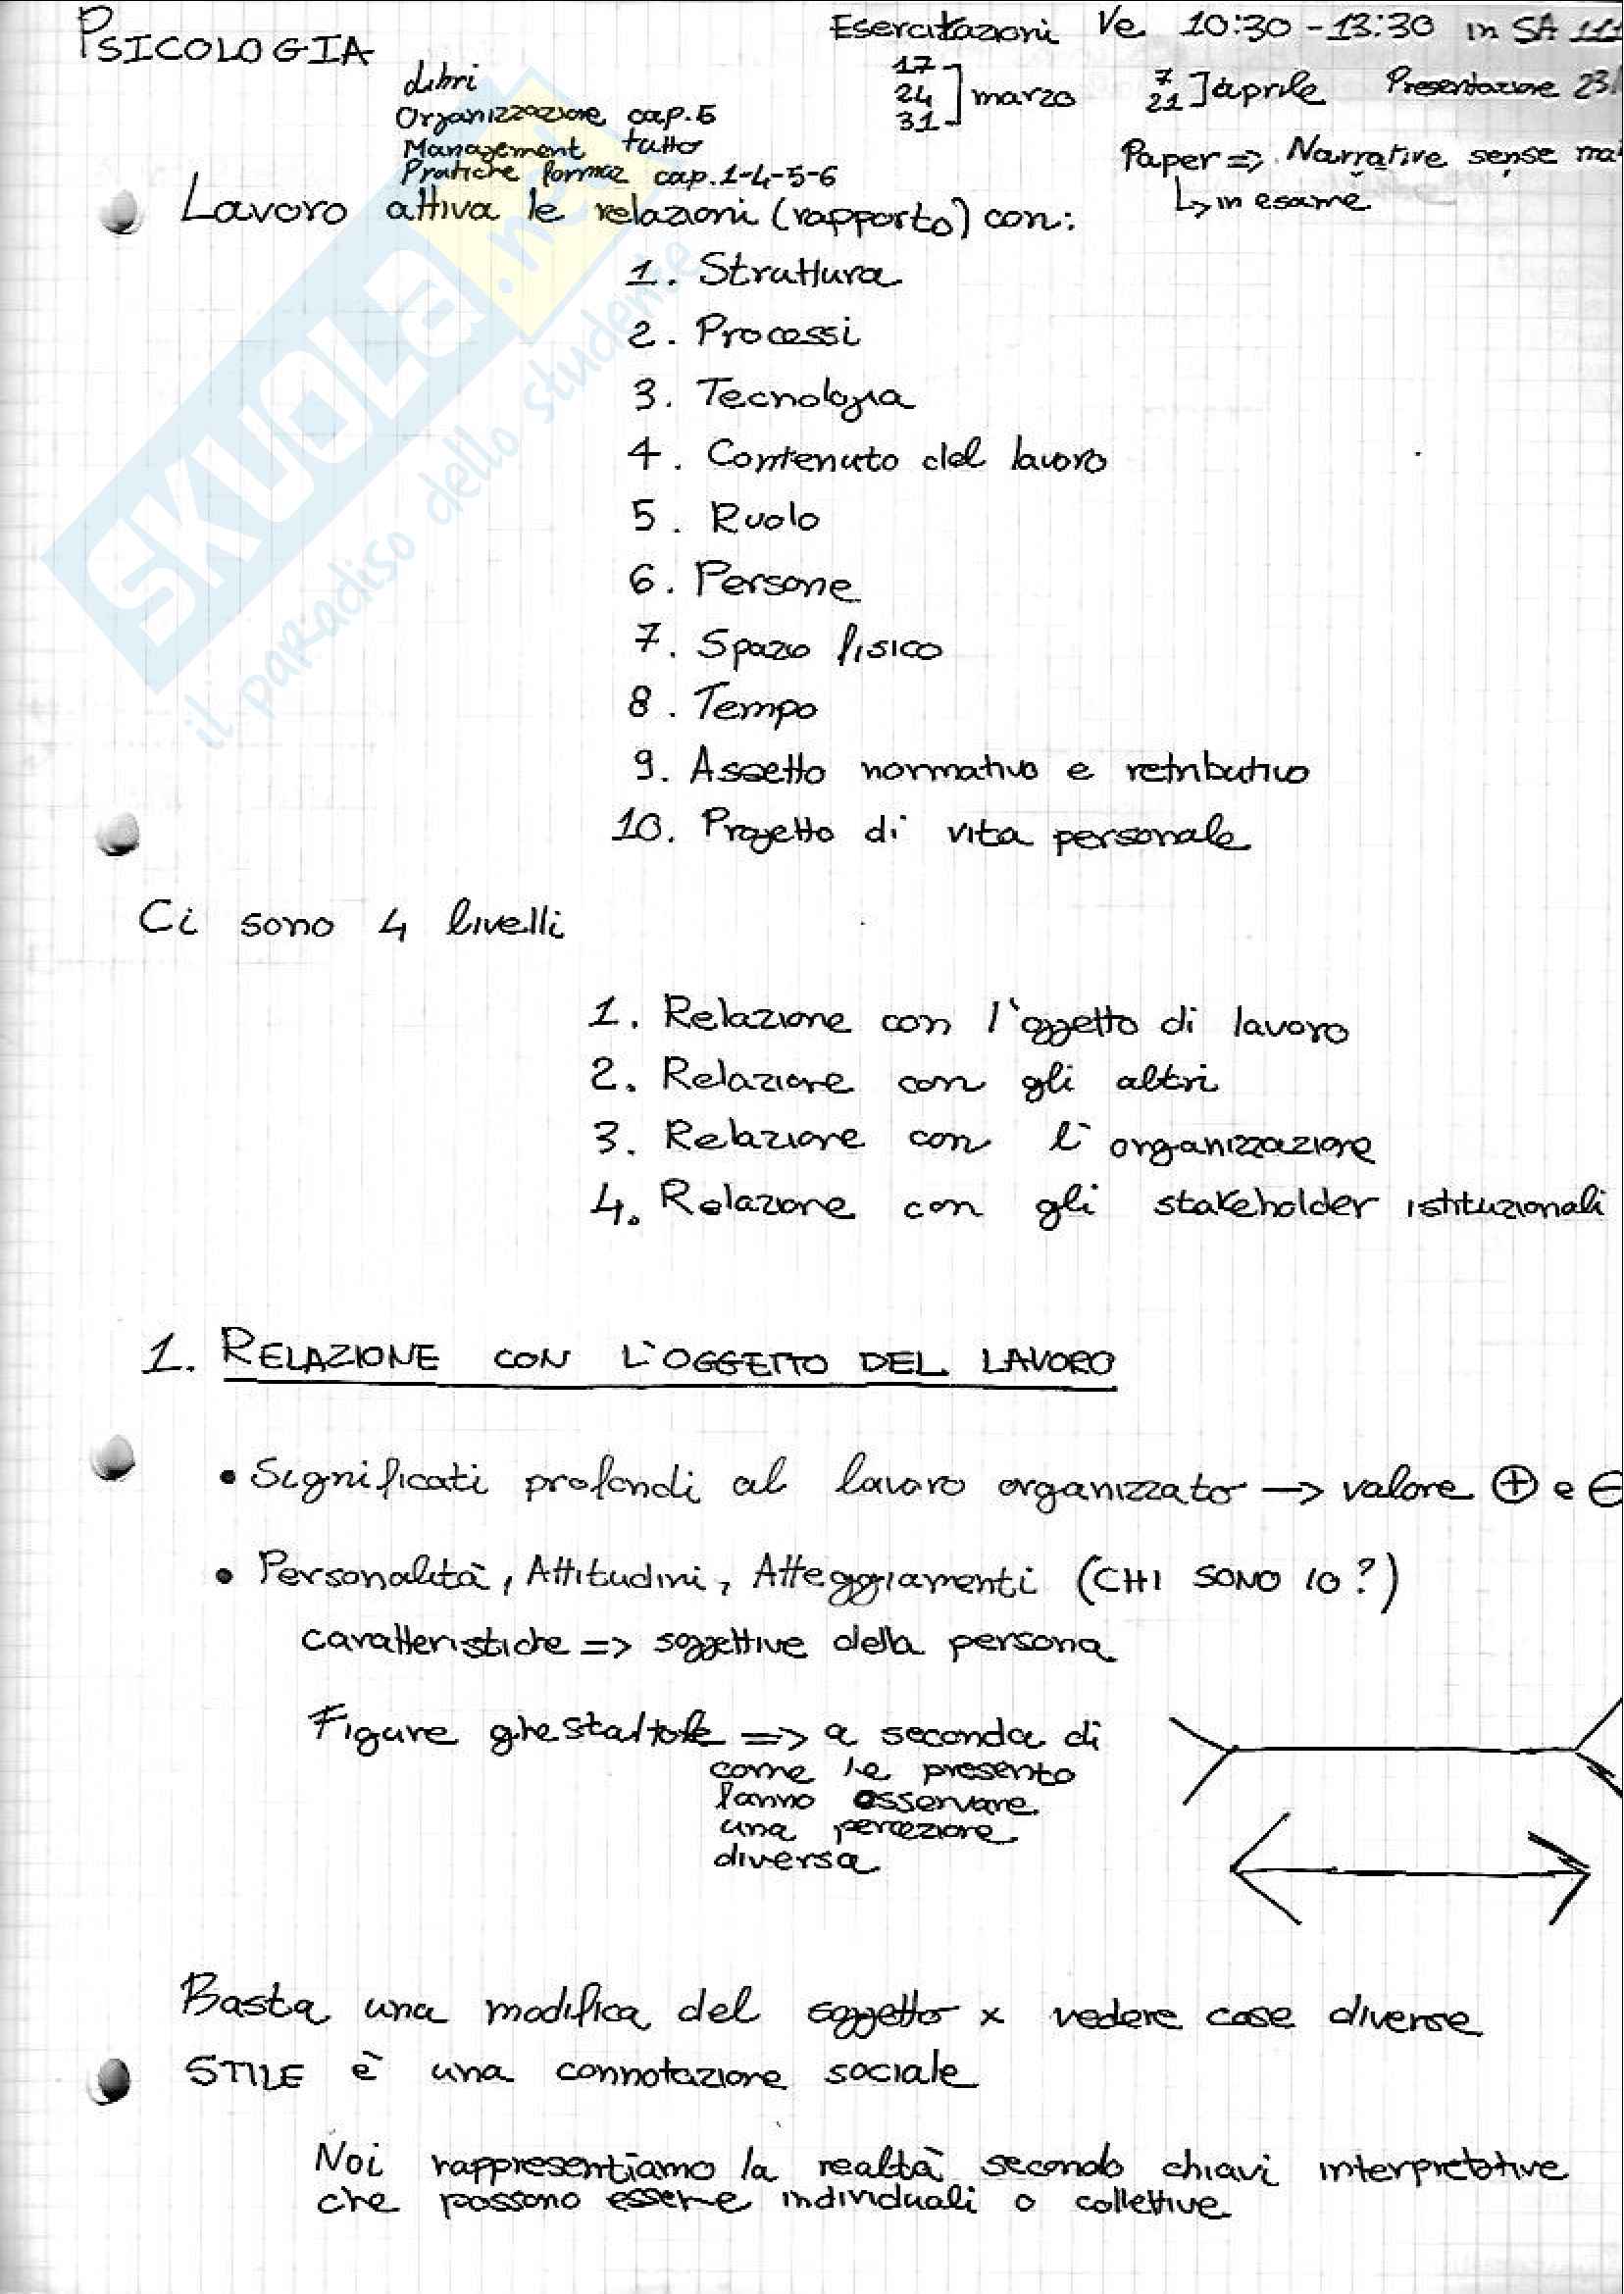 PSICOLOGIA
Esercitazioni Ve 10:30 - 13:30 in SA 111
libri
Organizzazione cap. 5
Management tutto
Pratiche formaz cap. 1-4-5-6
17
24
31
] marzo
7
21
] aprile
Presentazione 23
Paper => Narrative sense ma
↳ in esame
Lavoro attiva le relazioni (rapporto) con:
1. Struttura
2. Processi
3. Tecnologia
4. Contenuto del lavoro
5. Ruolo
6. Persone
7. Spazio fisico
8. Tempo
9. Assetto normativo e retributivo
10. Progetto di vita personale
SKUOLA.net
il paradiso dello studente
Ci sono 4 livelli
1. Relazione con l'oggetto di lavoro
2. Relazione con gli altri
3. Relazione con l'organizzazione
4. Relazione con gli stakeholder istituzionali
1. RELAZIONE CON L'OGGETTO DEL LAVORO
• Significati profondi al lavoro organizzato → valore ⊕ e ⊖
• Personalità, Attitudini, Atteggiamenti (CHI SONO IO?)
caratteristiche => soggettive della persona
Figure => a seconda di
come le presento
fanno osservare
una percezione
diversa
Basta una modifica del soggetto x vedere cose diverse
STILE è una connotazione sociale
Noi rappresentiamo la realtà secondo chiavi interpretative
che possono essere individuali o collettive